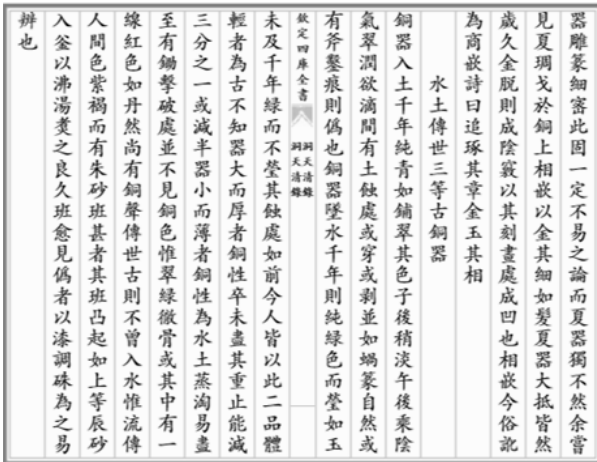 器雕篆細密此固一定不易之論而夏器獨不然余嘗
見夏琱戈於銅上相嵌以金其細如髮夏器大抵皆然
歲久金脱則成陰竅以其刻畫處成凹也相嵌今俗訛
為商嵌詩曰追琢其章金玉其相
水土傳世三等古銅器
銅器入土千年純青如鋪翠其色子後稍淡午後乗陰
氣翠潤欲滴間有土蝕處或穿或剥並如蝸篆自然或
有斧鑿痕則僞也銅器墜水千年則純緑色而瑩如玉
欽定四庫全書
洞天清録
洞天清録
未及千年緑而不瑩其蝕處如前今人皆以此二品體
輕者為古不知器大而厚者銅性卒未盡其重止能減
三分之一或減半器小而薄者銅性為水土蒸淘易盡
至有鋤擊破處並不見銅色惟翠緑徹骨或其中有一
線紅色如丹然尚有銅聲傳世古則不曾入水惟流傳
人間色紫褐而有朱砂班甚者其班凸起如上等辰砂
入釜以沸湯煑之良久班愈見僞者以漆調硃為之易
辨也